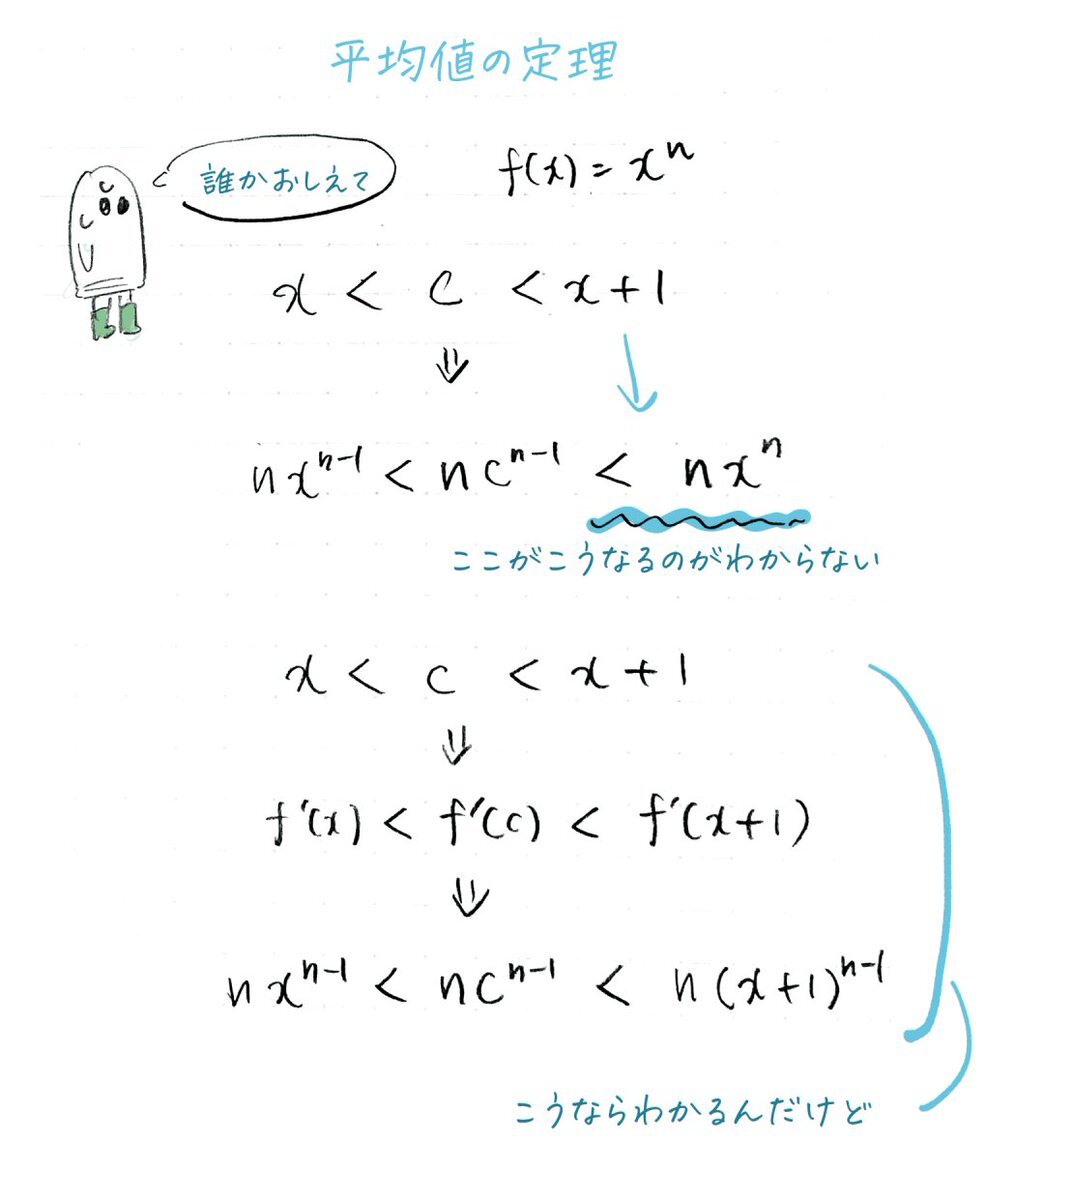 平均値の定理
誰かおしえて
f(x) = xⁿ
x < c < x+1
⇓
nxⁿ⁻¹ < ncⁿ⁻¹ < nxⁿ
ここがこうなるのがわからない
x < c < x+1
⇓
f'(x) < f'(c) < f'(x+1)
⇓
nxⁿ⁻¹ < ncⁿ⁻¹ < n(x+1)ⁿ⁻¹
こうならわかるんだけど